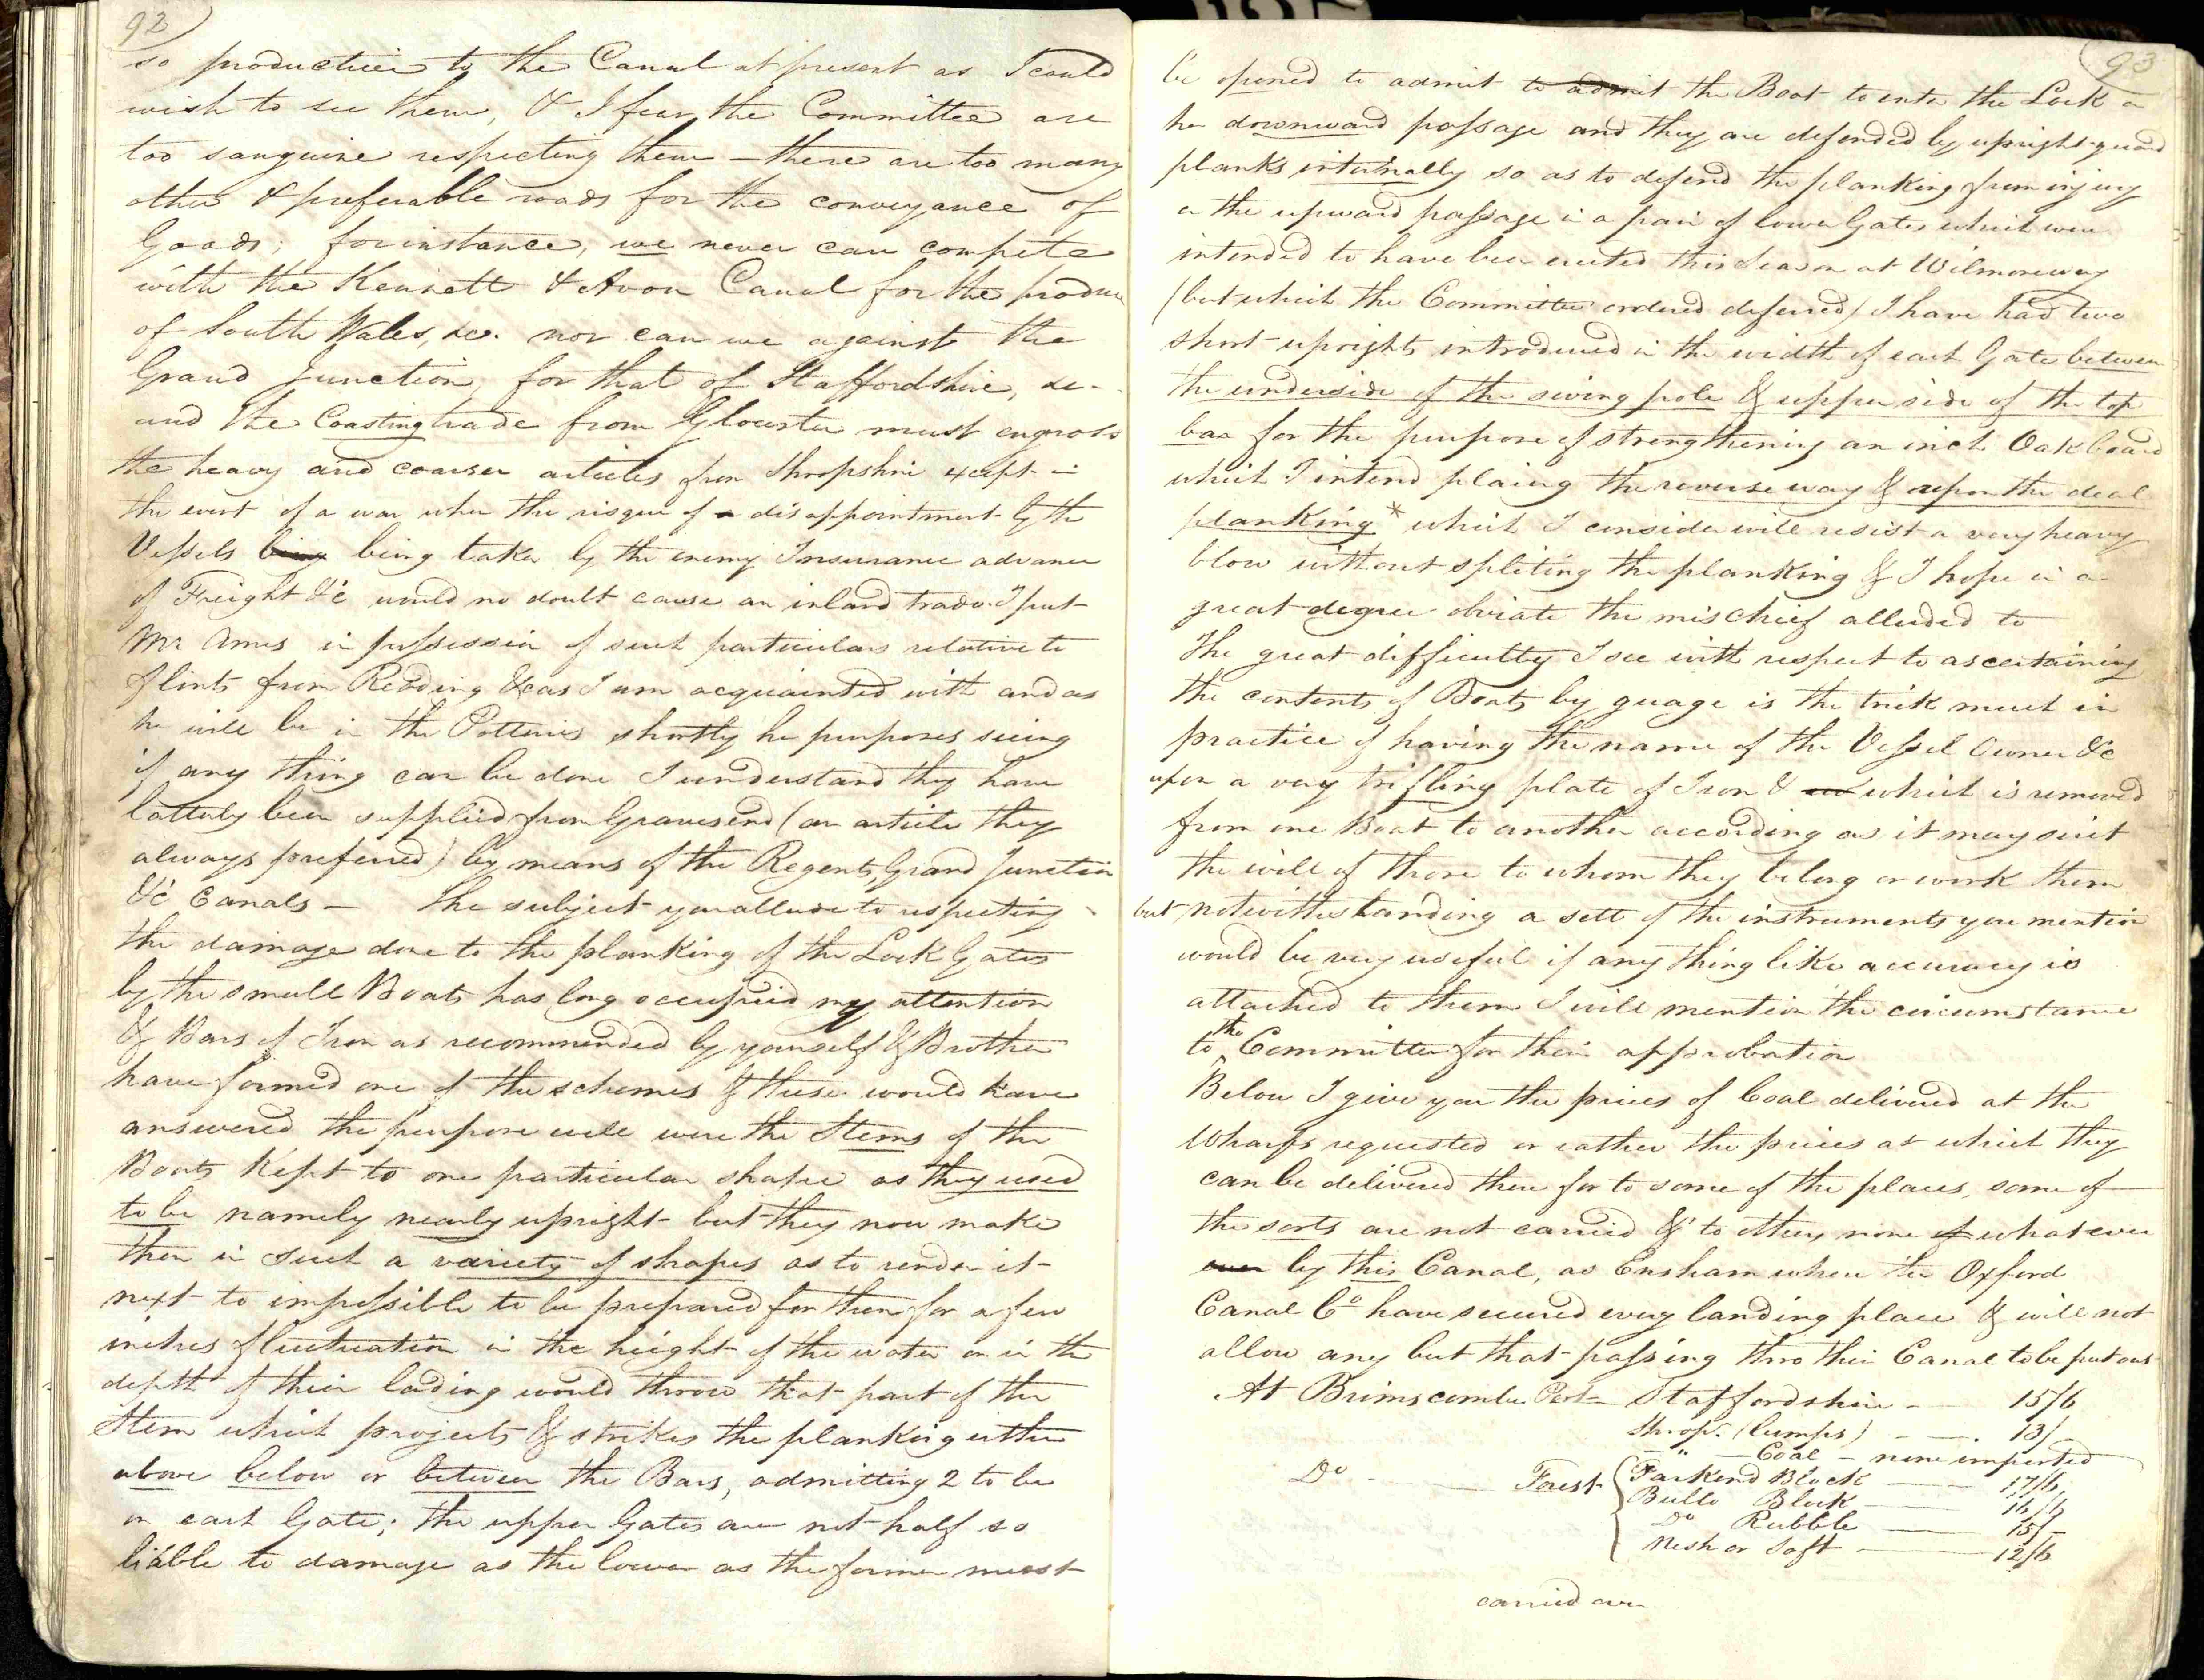 92
so productive to the Canal at present as I could
wish to see them, & I fear the Committee are
too sanguine respecting them – there are too many
other & preferable roads for the conveyance of
Goods; for instance, we never can compete
with the Kennett & Avon Canal for the produce
of South Wales, &c. nor can we against the
Grand Junction, for that of Staffordshire, &c.
and the Coasting trade from Glouster must engross
the heavy and coarser articles from Shropshire except in
the event of a war when the risque of a disappointment by the
Vessels being being taken by the enemy Insurance advance
of Freight &c would no doubt cause an inland trade. I put
Mr Ames in possession of such particulars relative to
flints from Reading &c as I am acquainted with and as
he will be in the Potteries shortly he purposes seeing
if any thing can be done I understand they have
latterly been supplied from Gravesend (an article they
always preferred) by means of the Regents, Grand Junction
&c Canals – The subject you allude to respecting
the damage done to the planking of the Lock Gates
by the small Boats has long occupied my attention
& Bars of Iron as recommended by yourself & Brother
have formed one of the schemes & these would have
answered the purpose well were the Stems of the
Boats Kept to one particular shape as they used
to be namely nearly upright but they now make
them in such a variety of shapes as to render it
next to impossible to be prepared for them for a few
inches fluctuation in the height of the water or in the
depth of their lading would throw that part of the
Stem which projects & strikes the planking either
above below or between the Bars, admitting 2 to be
on each Gate; the upper Gates are not half so
liable to damage as the lower as the former must
93
be opened to admit to admit the Boat to enter the Lock on
her downward passage and they are defended by upright guard
planks internally so as to defend the planking from injury
on the upward passage in a pair of lower Gates which were
intended to have been erected this Season at Wilmoreway
(but which the Committee ordered deferred) I have had two
short uprights introduced in the width of each Gate between
the underside of the swing pole & upper side of the top
bar for the purpose of strengthening an inch Oak board
which I intend placing the reverse way & upon the deal
planking * which I consider will resist a very heavy
blow without spliting the planking & I hope in a
great degree obviate the mischief alluded to
The great difficulty I see with respect to ascertaining
the contents of Boats by guage is the trick much in
practice of having the name of the Vessel Owner &c
upon a very trifling plate of Iron & which is removed
from one Boat to another according as it may suit
the will of those to whom they belong or work them
but notwithstanding a sett of the instruments you mention
would be very useful if any thing like accuracy is
attached to them I will mention the circumstance
to the Committee for their approbation
Below I give you the prices of Coal delivered at the
Wharfs requested or rather the prices at which they
can be delivered there for to some of the places, some of
the sorts are not carried & to others none of whatever
ever by this Canal, as Ensham where the Oxford
Canal Co have secured every landing place & will not
allow any but that passing thro their Canal to be put out
At Brimscombe Port – Staffordshire – 15/6
Shrops. (lumps) – – 13/–
– " – Coal – none imported
Do – – Forest { Parkend Block – 17/6
Bullo Block – 16/6
Do Rubble – 15/–
Nesh or Soft – 12/6
carried over